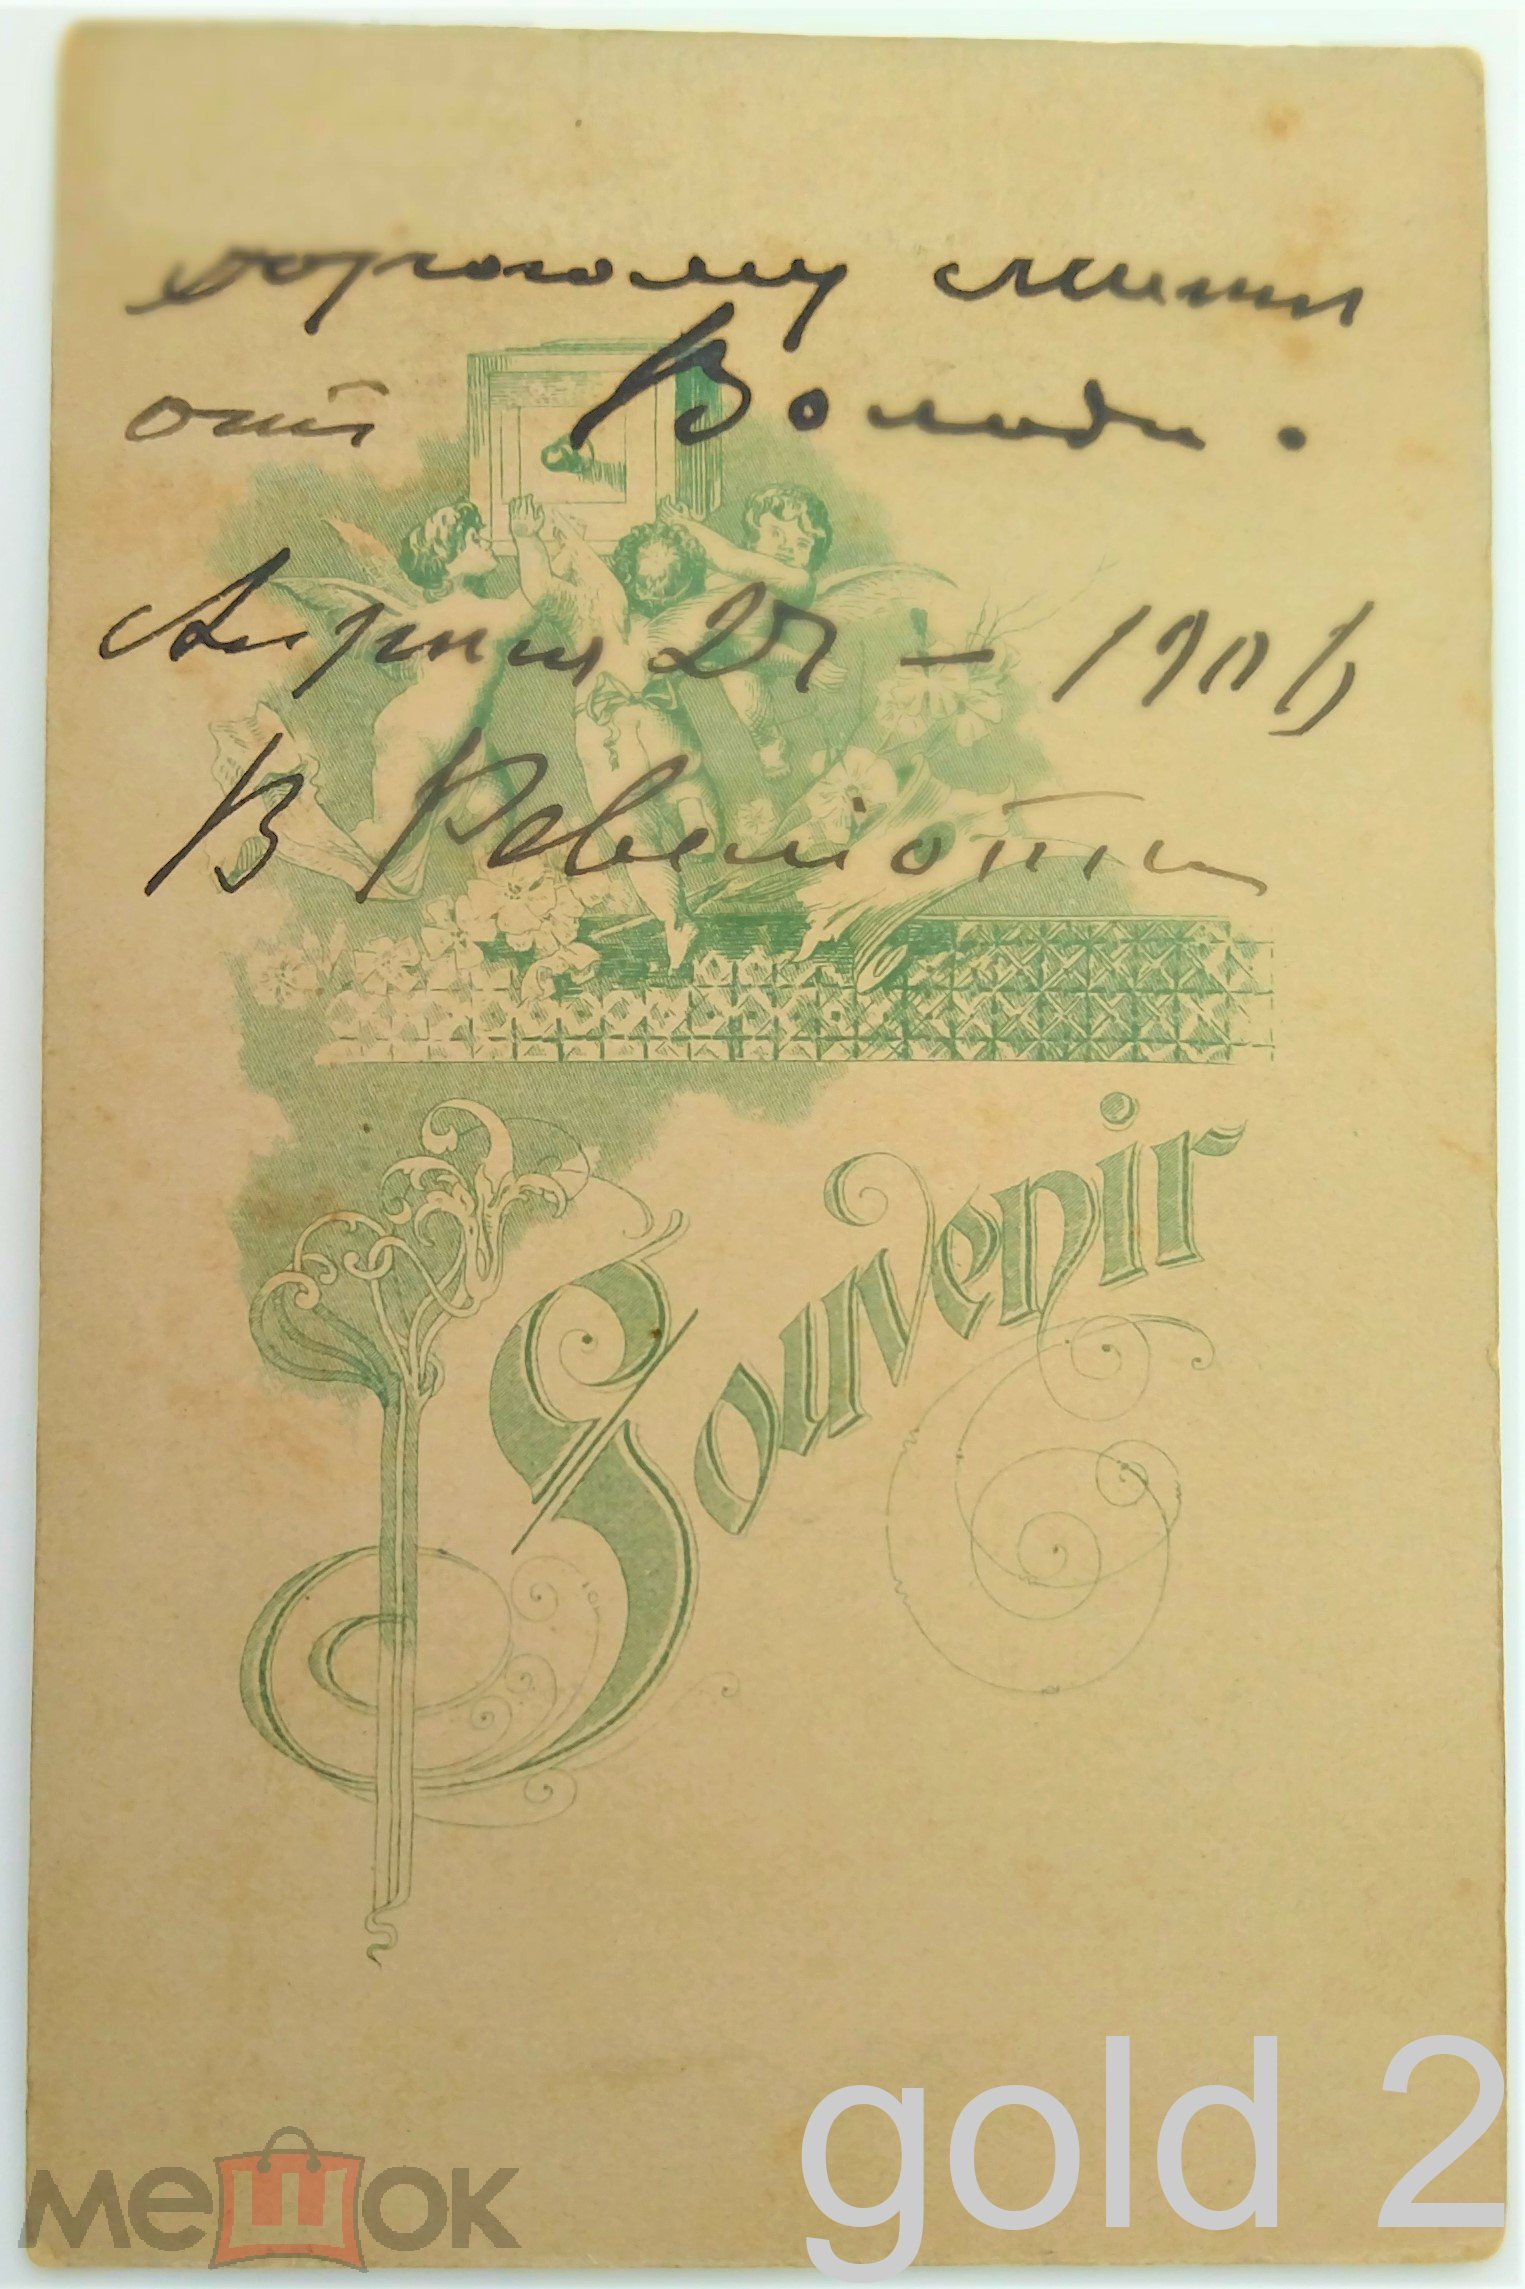 дорогому Мити
отъ Володи.
Апреля 27 - 1906
В
Souvenir
gold 2
мешок